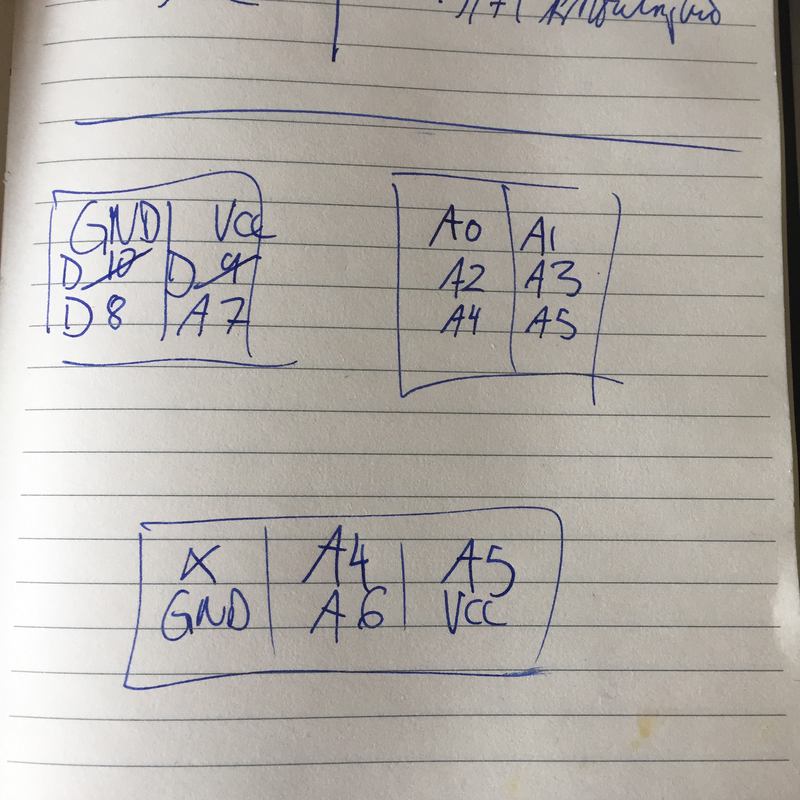 GND VCC
D 10 D 9
D 8 A 7
A0 A1
A2 A3
A4 A5
X A4 A5
GND A6 VCC